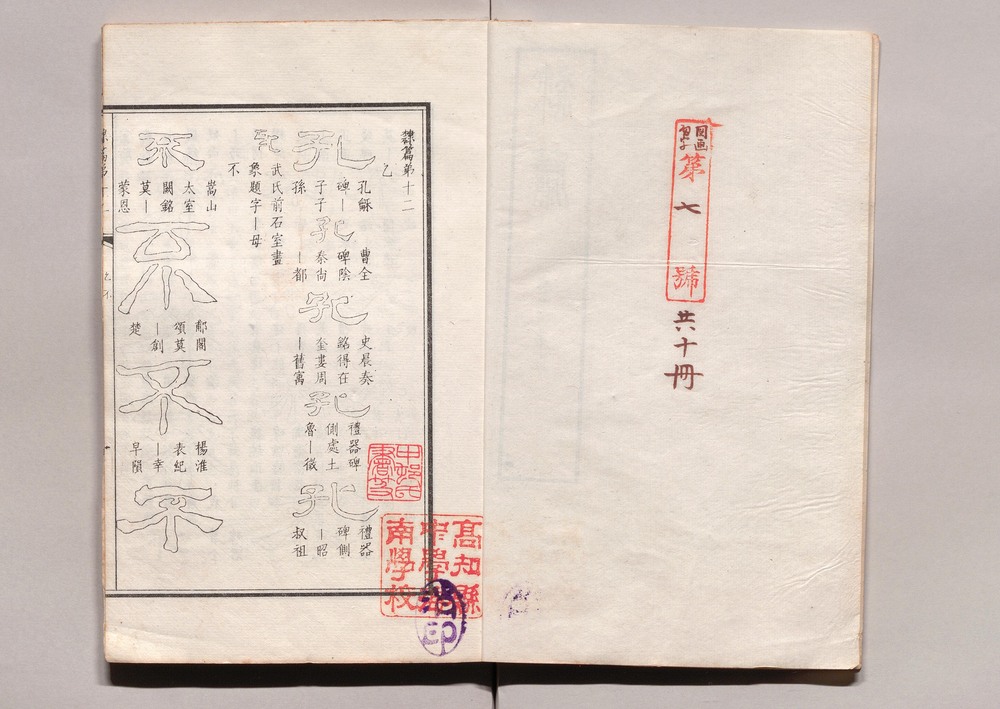 図画
第七號
共十冊
隸篇弟十二
乙
孔
孔龢
碑｜
子子
孫
孔
曹全
碑陰
秦尚
｜都
孔
史晨奏
銘得在
奎婁周
｜舊寓
孔
禮器碑
側處土
魯｜徵
孔
禮器
碑側
｜昭
叔祖
孔
武氏前石室畫
象題字｜母
不
不
嵩山
太室
闕銘
莫｜
蒙恩
不
郙閣
頌莫
｜創
楚
不
楊淮
表紀
｜幸
早隕
不
中邨氏
高知縣
中學海
南學校
消印